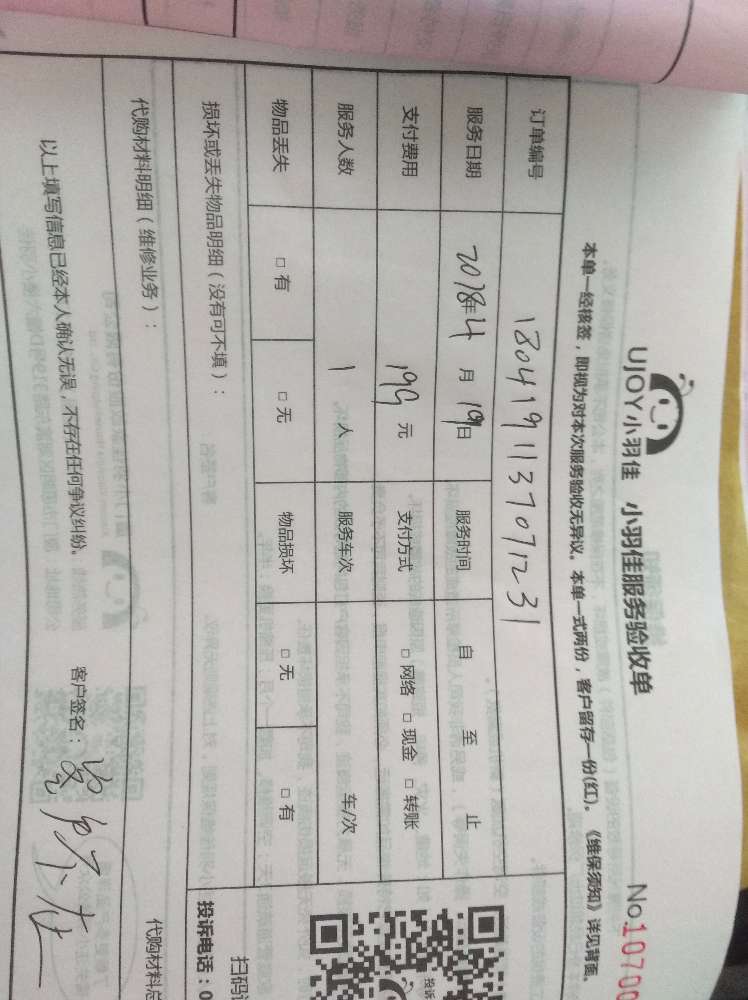 UJOY小羽佳 小羽佳服务验收单
No.10700
本单一经核签，即视为对本次服务验收无异议。本单一式两份，客户留存一份(红)。《维保须知》详见背面。
订单编号 18041911370711231
服务日期 2018年4月19日 服务时间 自 至 止
支付费用 199元 支付方式 □网络 □现金 □转账
服务人数 1人 服务车次 车/次
物品丢失 □有 □无 物品损坏 □无 □有
损坏或丢失物品明细（没有可不填）：
代购材料明细（维修业务）： 代购材料总
以上填写信息已经本人确认无误，不存在任何争议纠纷。 客户签名：
投诉
扫码
投诉电话：0